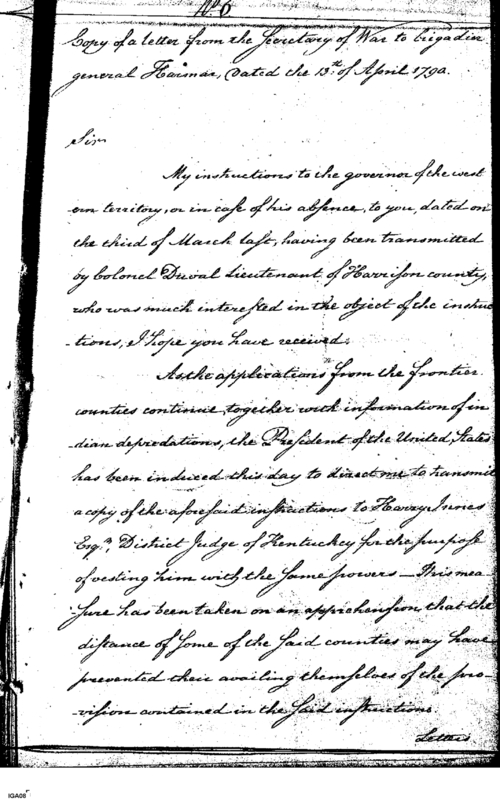 No 6
Copy of a letter from the Secretary of War to brigadier
general Harmar, dated the 13th of April 1790.
Sir
My instructions to the governor of the west
ern territory, or in case of his absence, to you, dated on
the third of March last, having been transmitted
by Colonel Duval Lieutenant of Harrison county,
who was much interested in the object of the instruc
-tions, I hope you have received.
As the applications from the frontier
counties continue, together with information of in
-dian depredations, the President of the United States
has been induced this day to direct me to transmit
a copy of the aforesaid instructions to Harry Innes
Esqr, District Judge of Kentuckey for the purpose
of vesting him with the same powers — This mea
-sure has been taken on an apprehension, that the
distance of some of the said counties may have
prevented their availing themselves of the pro-
-vision contained in the said instructions.
Letters
IGA08